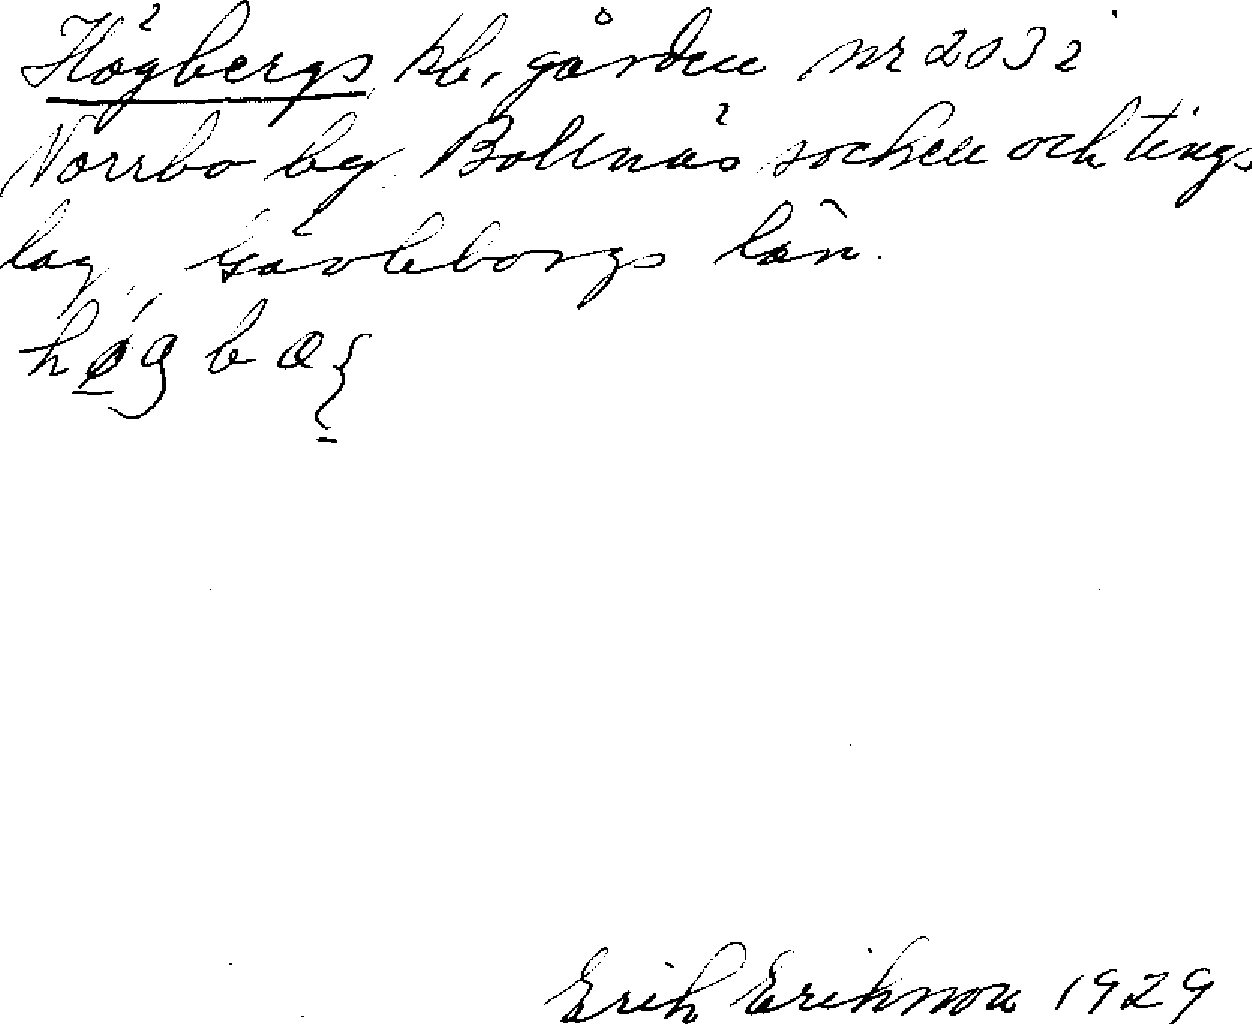 Högbergs kb. gården nr 203 i
Norrbo by Bollnäs socken och tings
lag, Gävleborgs län.
Erik Erikson 1929